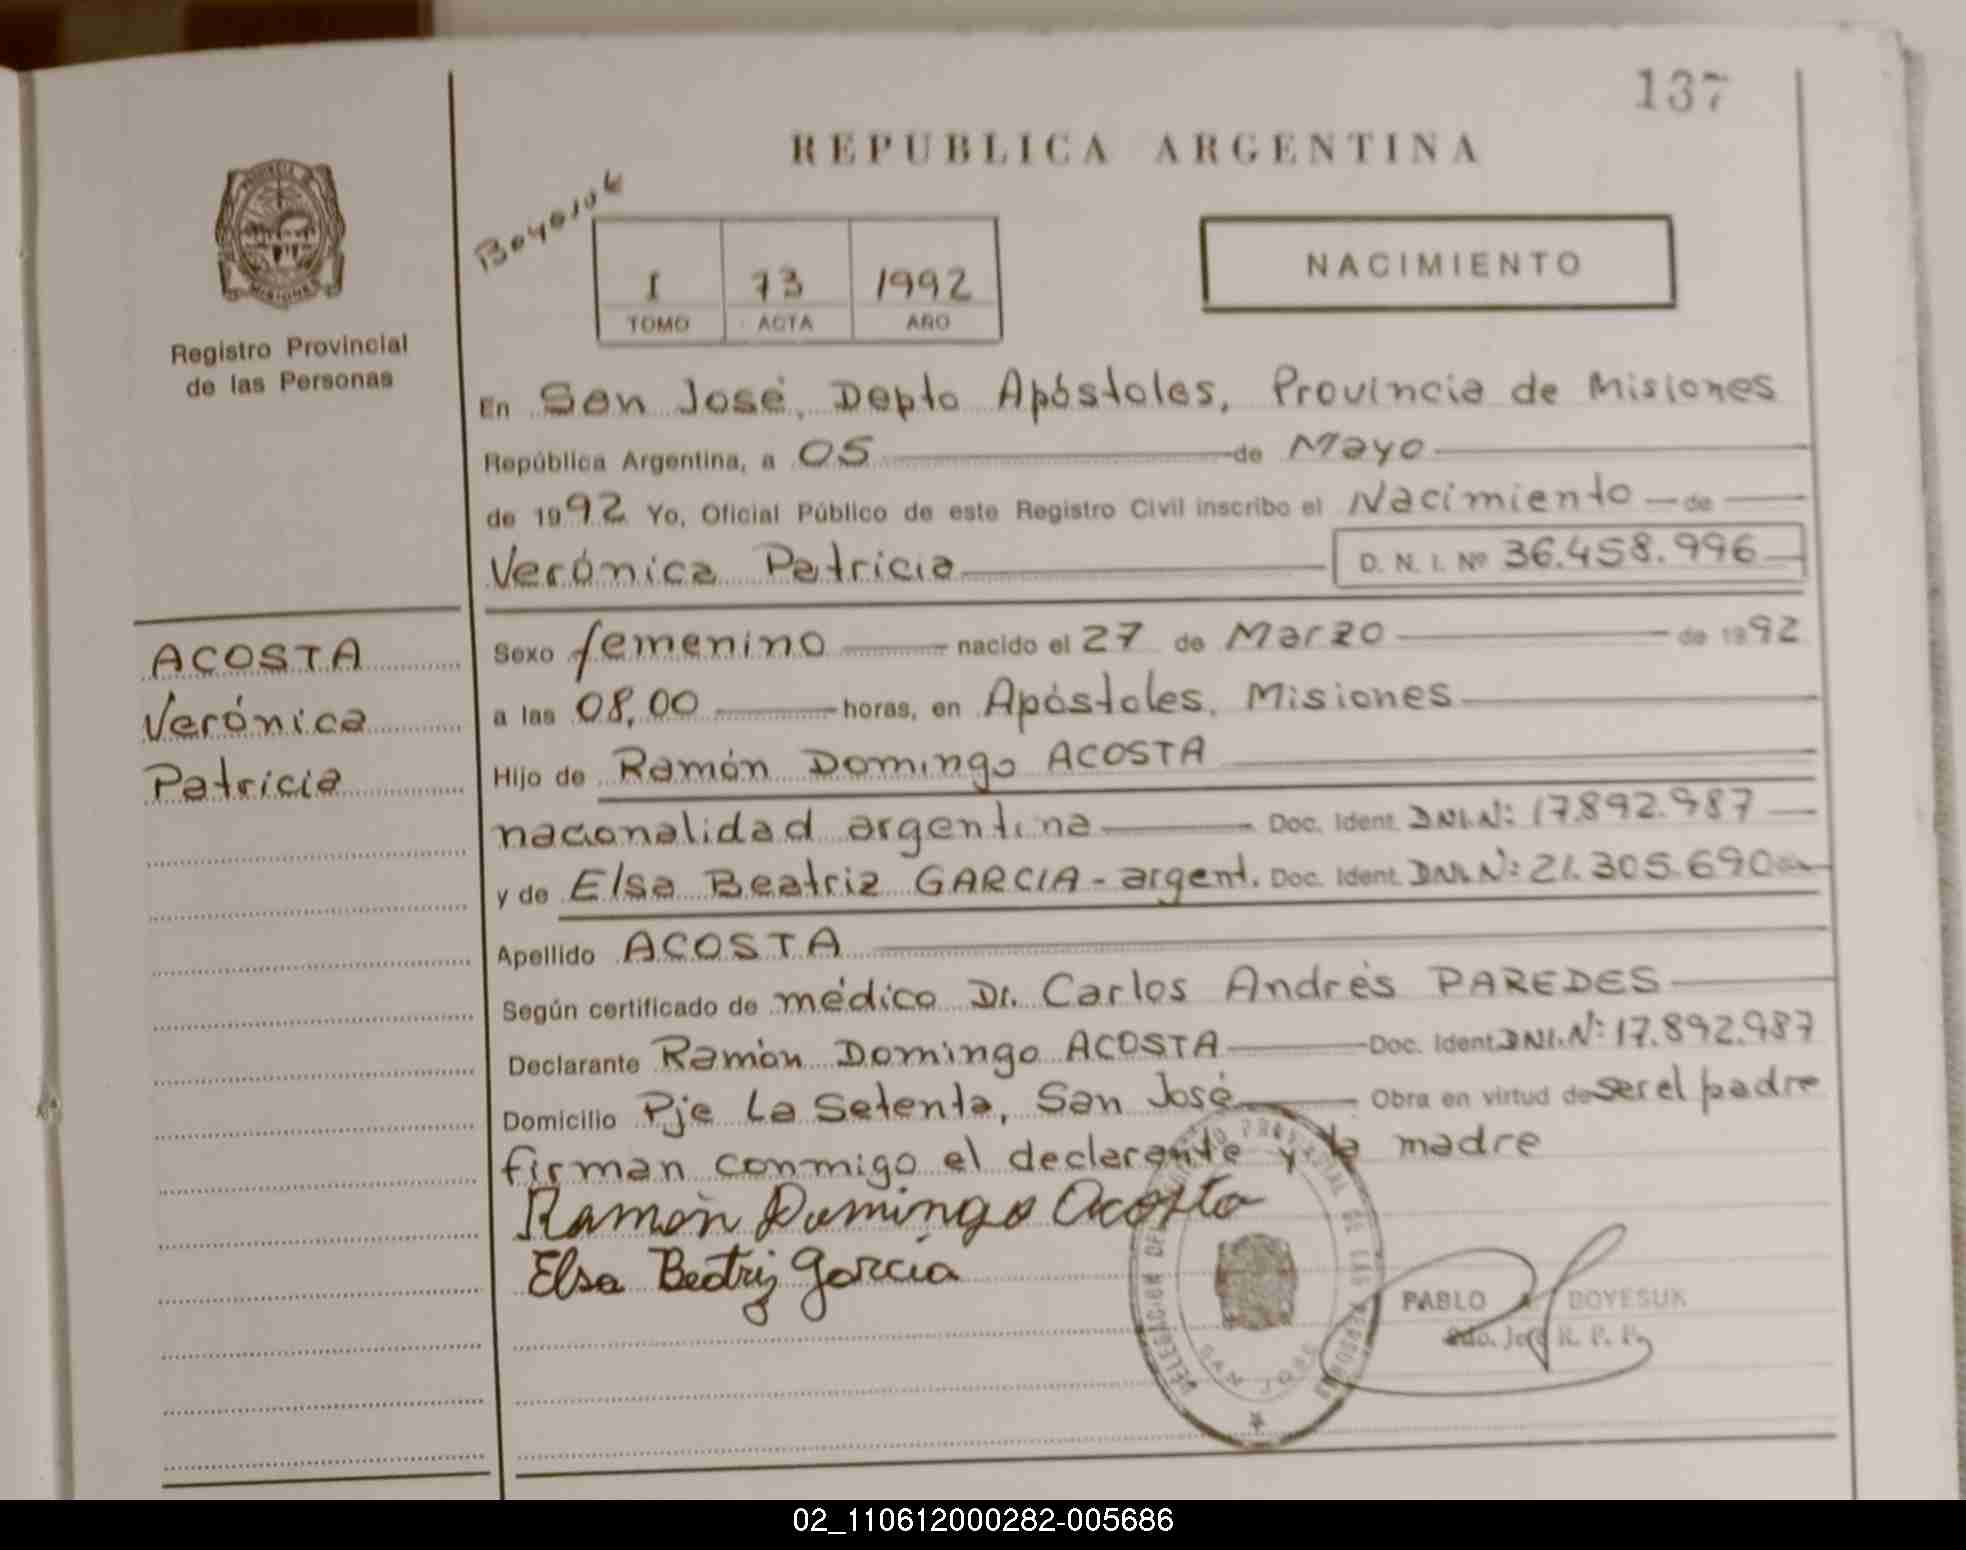 137
REPUBLICA ARGENTINA
Boyesuk
I 73 1992
TOMO ACTA AÑO
NACIMIENTO
Registro Provincial
de las Personas
En San José, Depto Apóstoles, Provincia de Misiones
República Argentina, a 05 de Mayo
de 1992 Yo, Oficial Público de este Registro Civil inscribo el Nacimiento de
Verónica Patricia D. N. I. Nº 36.458.996
ACOSTA
Verónica
Patricia
Sexo femenino nacido el 27 de Marzo de 1992
a las 08,00 horas, en Apóstoles, Misiones
Hijo de Ramón Domingo ACOSTA
nacionalidad argentina Doc. Ident. DNI.Nº: 17.892.987
y de Elsa Beatriz GARCIA - argent. Doc. Ident. DNI.Nº: 21.305.690
Apellido ACOSTA
Según certificado de médico Dr. Carlos Andrés PAREDES
Declarante Ramón Domingo ACOSTA Doc. Ident. DNI.Nº: 17.892.987
Domicilio Pje La Setenta, San José Obra en virtud de ser el padre
firman conmigo el declarante y la madre
Ramón Domingo Acosta
Elsa Beatriz García
DELEGACION DEL REGISTRO PROVINCIAL DE LAS PERSONAS
SAN JOSE
PABLO BOYESUK
R. P. P.
02_110612000282-005686